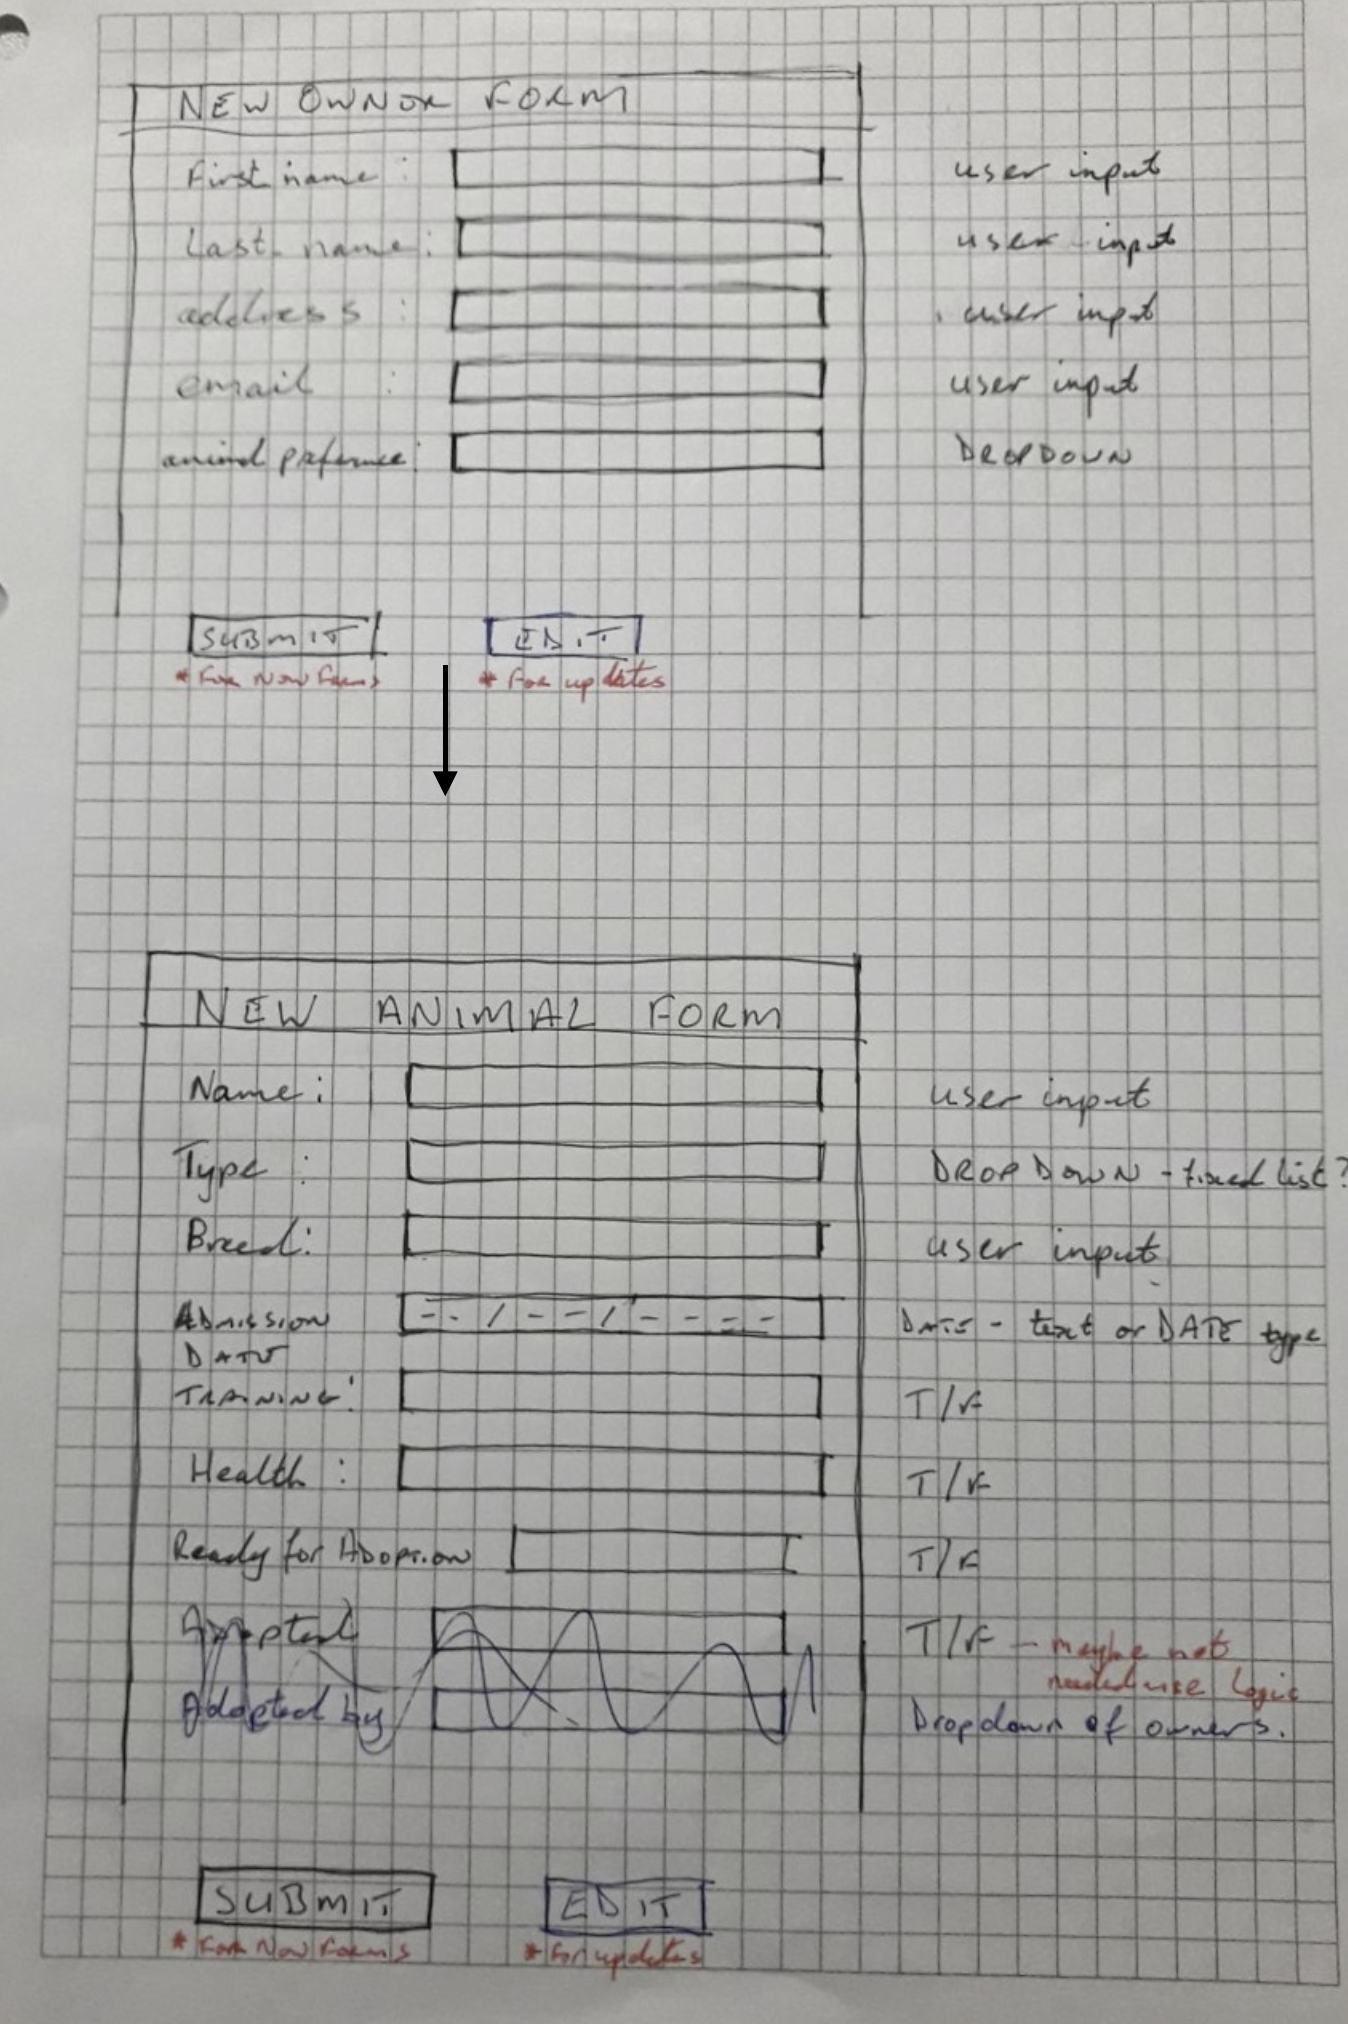 NEW OWNOR FORM
First name : user input
Last name : user input
address : user input
email : user input
animal preference: DROPDOWN
SUBMIT EDIT
* For New Forms * For updates
NEW ANIMAL FORM
Name : user input
Type : DROP DOWN - fixed list?
Breed: user input
ADMISSION DATE - text or DATE type
DATE
TRAINING: T/F
Health : T/F
Ready for ADOPTION T/F
Adopted T/F - maybe not
needed use logic
Adopted by Dropdown of owners.
SUBMIT EDIT
* For New Forms * For updates